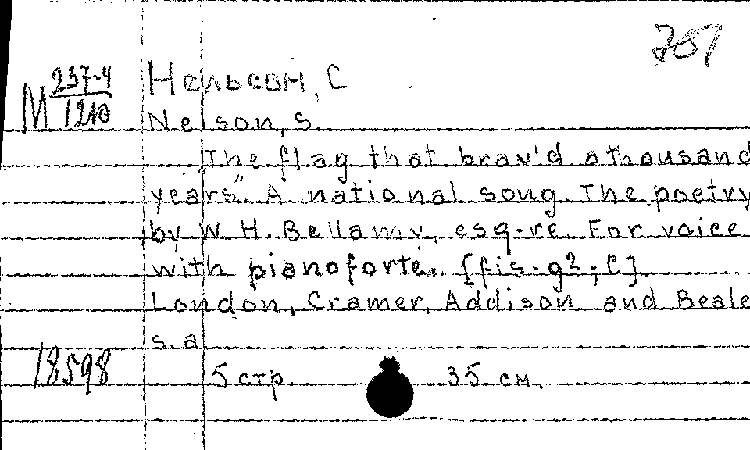 M 237-4
1210
Нельсон, С
Nelson, S.
"The flag that brav'd a thousand
years". A national song. The poetry
by W. H. Bellamy, esq-re. For voice
with pianoforte. [fis-g²; C].
London, Cramer, Addison and Beale
s. a
18598
5 стр. 35 см.